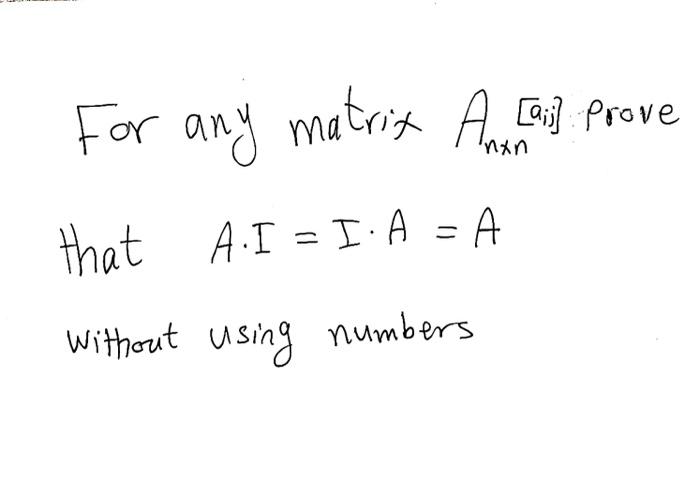 For any matrix Aₙₓₙ [aij] Prove
that A·I = I·A = A
without using numbers